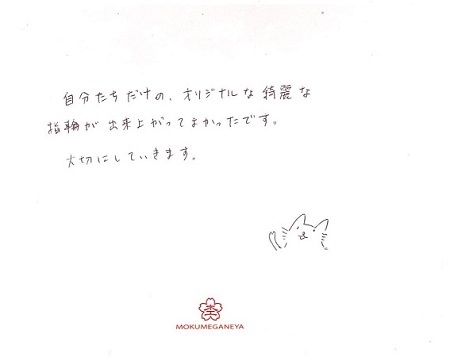 自分たちだけの、オリジナルな綺麗な
指輪が出来上がってよかったです。
大切にしていきます。
MOKUMEGANEYA